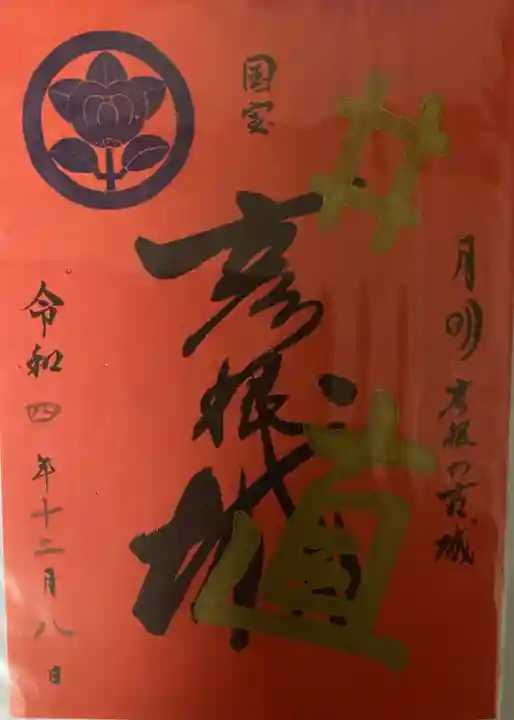 月明 彦根の古城
国宝
彦根城
井
直
令和四年十二月八日